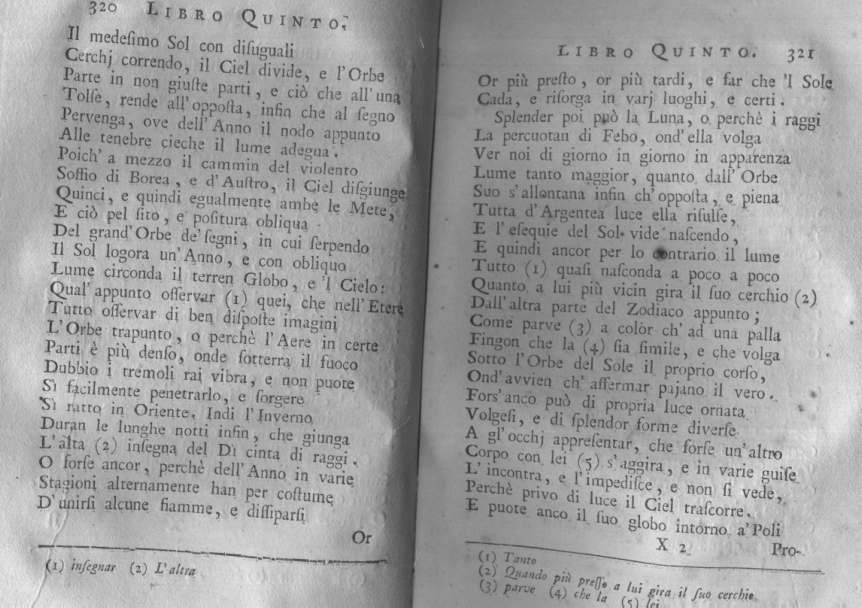 320 LIBRO QUINTO.
Il medeſimo Sol con diſuguali
Cerchj correndo, il Ciel divide, e l'Orbe
Parte in non giuſte parti, e ciò che all'una
Tolſe, rende all'oppoſta, inſin che al ſegno
Pervenga, ove dell'Anno il nodo appunto
Alle tenebre cieche il lume adegua.
Poich' a mezzo il cammin del violento
Soffio di Borea, e d'Auſtro, il Ciel diſgiunge
Quinci, e quindi egualmente ambe le Mete,
E ciò pel ſito, e poſitura obliqua
Del grand'Orbe de'ſegni, in cui ſerpendo
Il Sol logora un'Anno, e con obliquo
Lume circonda il terren Globo, e 'l Cielo:
Qual' appunto oſſervar (1) quei, che nell'Etere
Tutto oſſervar di ben diſpoſte imagini
L'Orbe trapunto, o perchè l'Aere in certe
Parti è più denſo, onde ſotterra il fuoco
Dubbio i tremoli rai vibra, e non puote
Sì facilmente penetrarlo, e ſorgere
Sì ratto in Oriente. Indi l'Inverno
Duran le lunghe notti inſin, che giunga
L'alta (2) inſegna del Dì cinta di raggi.
O forſe ancor, perchè dell'Anno in varie
Stagioni alternamente han per coſtume
D'unirſi alcune fiamme, e diſſiparſi
Or
(1) inſegnar (2) L'altra
LIBRO QUINTO. 321
Or più preſto, or più tardi, e far che 'l Sole
Cada, e riſorga in varj luoghi, e certi.
Splender poi può la Luna, o perchè i raggi
La percuotan di Febo, ond'ella volga
Ver noi di giorno in giorno in apparenza
Lume tanto maggior, quanto dall' Orbe
Suo s'allontana infin ch'oppoſta, e piena
Tutta d'Argentea luce ella riſulſe,
E l'eſequie del Sol vide naſcendo,
E quindi ancor per lo contrario il lume
Tutto (1) quaſi naſconda a poco a poco
Quanto a lui più vicin gira il ſuo cerchio (2)
Dall'altra parte del Zodiaco appunto;
Come parve (3) a color ch' ad una palla
Fingon che la (4) ſia ſimile, e che volga
Sotto l'Orbe del Sole il proprio corſo,
Ond'avvien ch' affermar pajano il vero.
Forſ'anco può di propria luce ornata
Volgeſi, e di ſplendor forme diverſe
A gl'occhj appreſentar, che forſe un'altro
Corpo con lei (5) s'aggira, e in varie guiſe
L' incontra, e l'impediſce, e non ſi vede,
Perchè privo di luce il Ciel traſcorre.
E puote anco il ſuo globo intorno a'Poli
X 2 Pro-
(1) Tanto
(2) Quando più preſſo a lui gira il ſuo cerchio
(3) parve (4) che la (5) lei